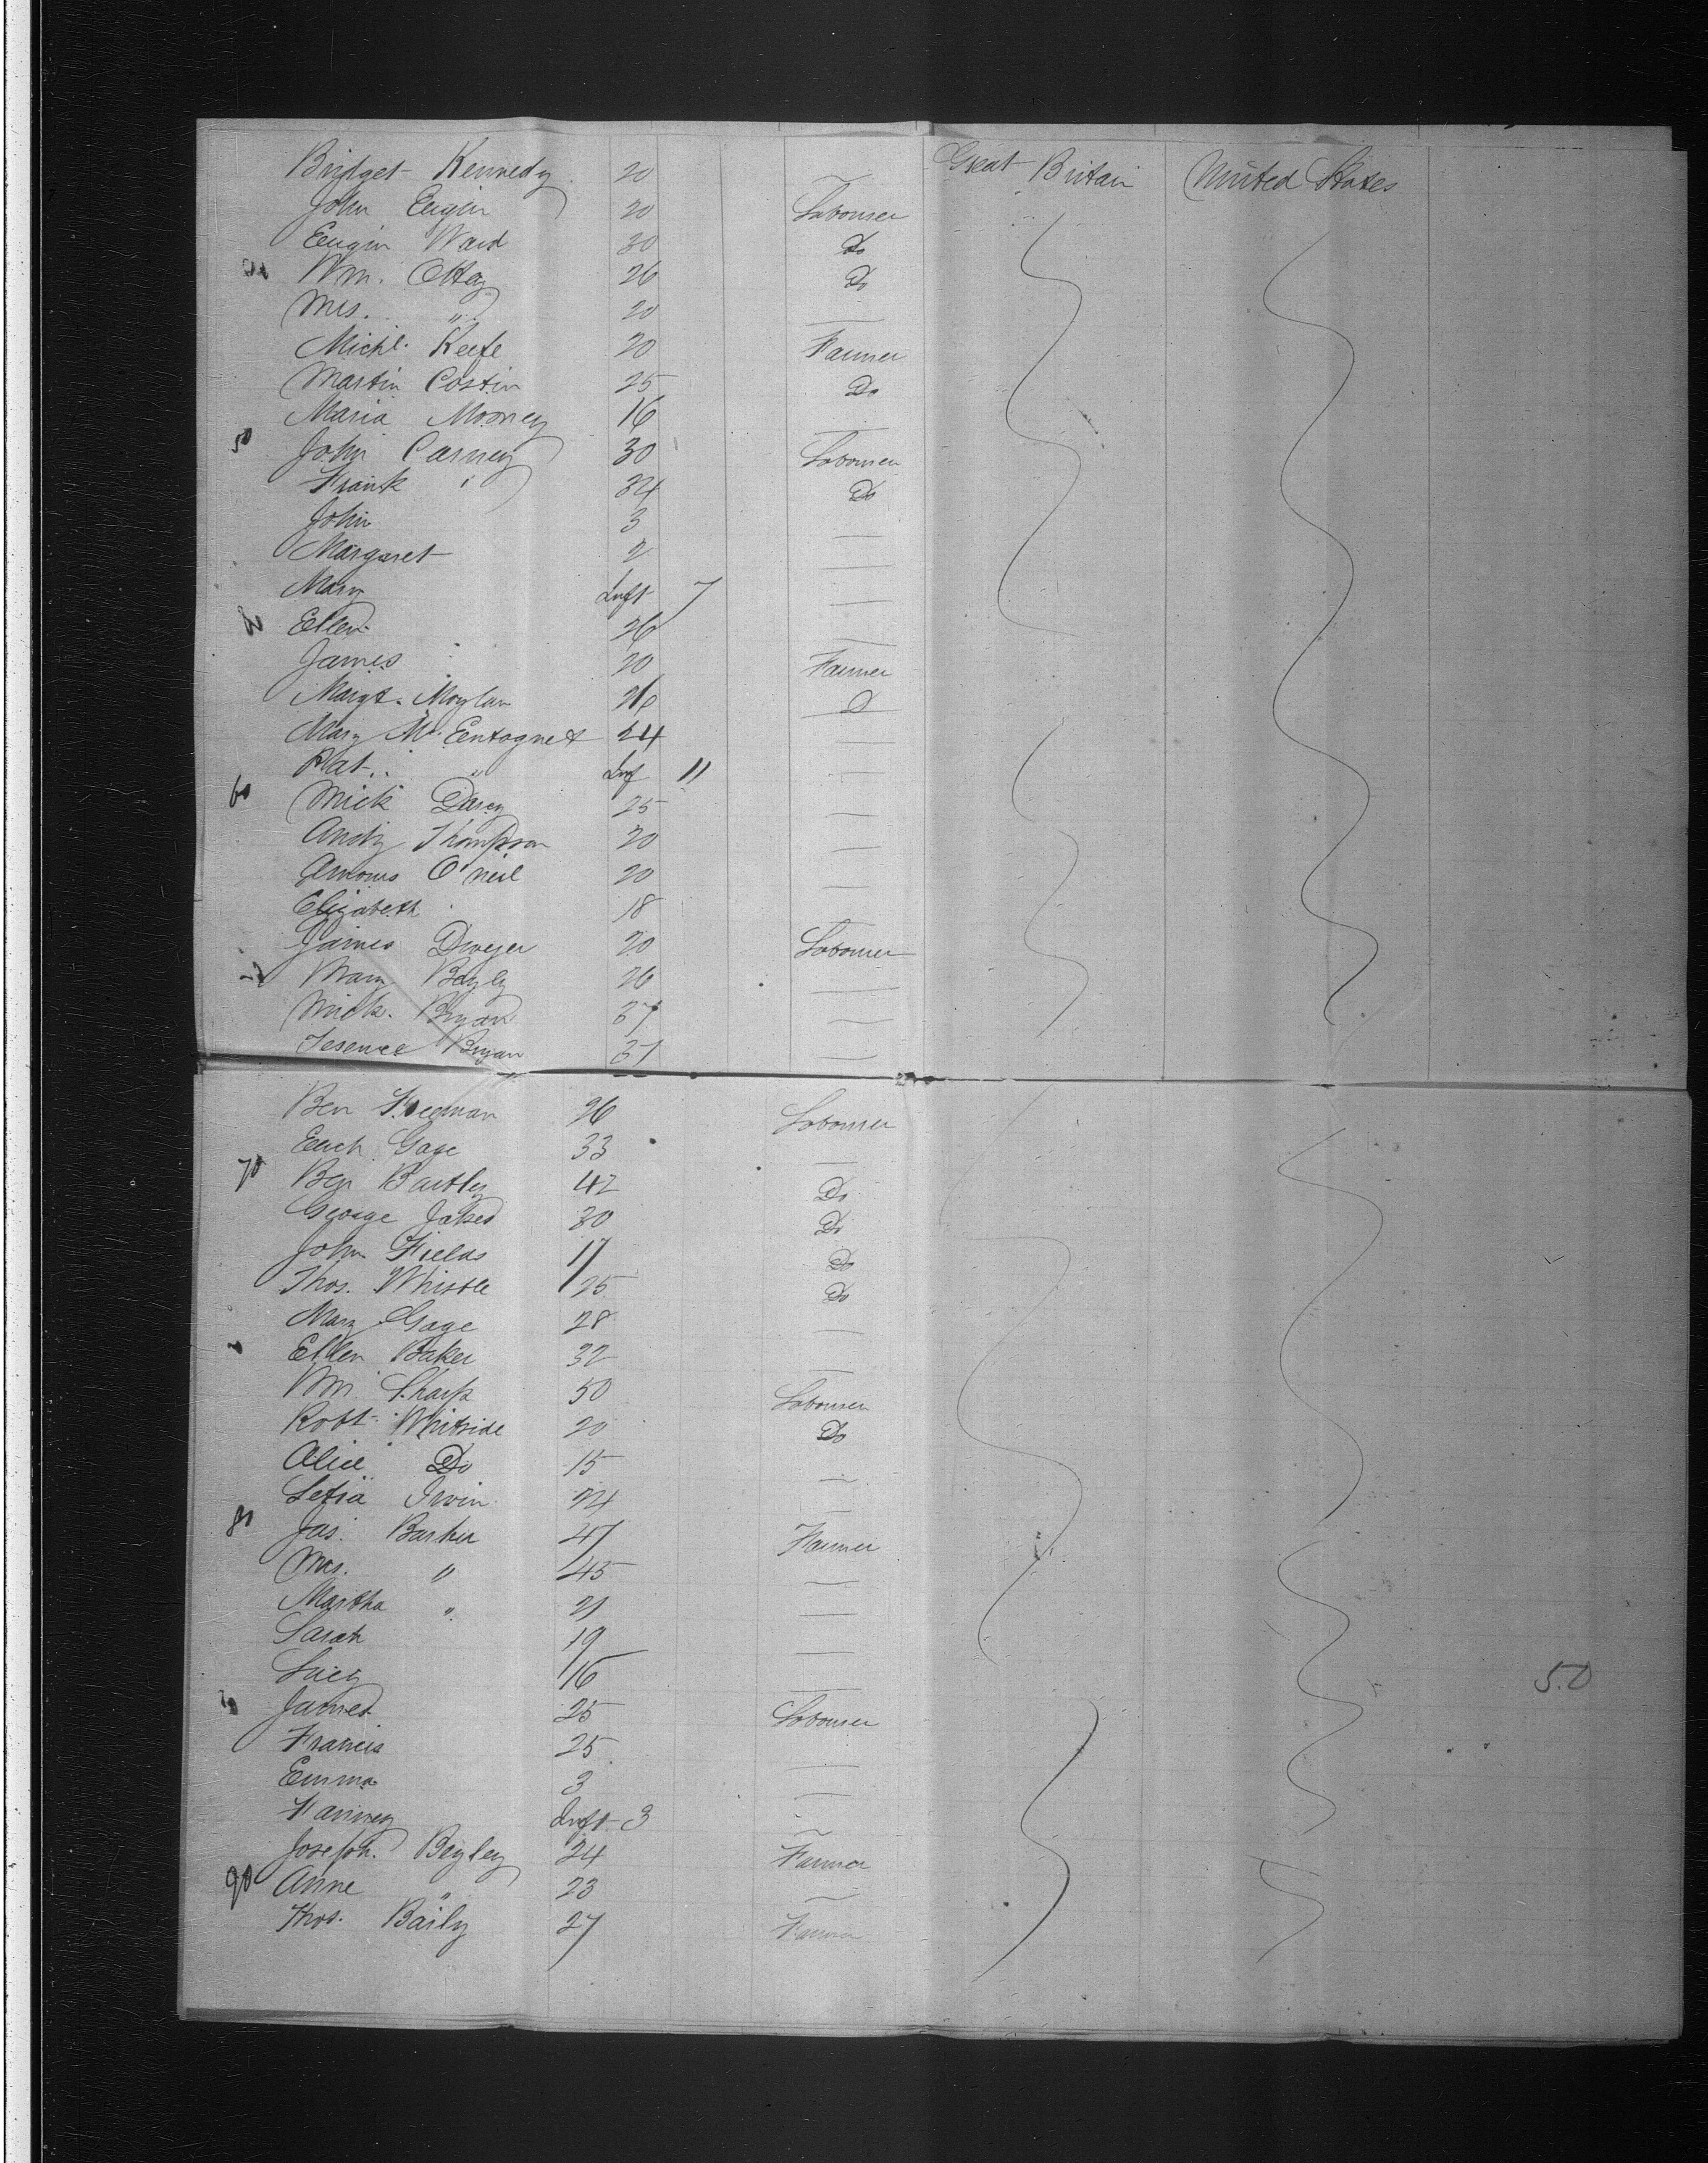 Bridget Kennedy 20 — Great Britain United States
John Eugin 20 Labourer
Eugin Ward 30 Do
Wm. Ottey 26 Do
Mrs. " 20 —
Michl. Keefe 20 Farmer
Martin Costin 25 Do
Maria Mooney 16 —
50 John Carney 30 Labourer
Frank " 24 Do
John 3 —
Margaret 2 —
Mary Inft 7 —
Ellen 26 —
James 20 Farmer
Margt. Moylan 26
Mary Mc Entagnet 24 —
Pat. " Inf 11 —
60 Mick Darcy 25 —
Andy Thompson 20 —
O'neil 20 —
Elizabeth 18 —
James Dwyer 20 Labourer
Mary Bayly 26 —
Mick. Bryan 37 —
Terence Bryan 37 —
Ben Freeman 26 Labourer
Gage 33 —
70 Ben Bartley 42 Do
George Jakes 30 Do
John Fields 17 Do
Thos. Whistle 25 Do
Mary Gage 28 —
Ellen Baker 32 —
Wm. Sharp 50 Labourer
Robt. Whitside 20 Do
Alice Do 15 —
Letia Irwin 24 —
80 Jas. Barker 47 Farmer
Mrs. " 45 —
Martha " 21 —
Sarah 19 —
Lucy 16 — 50
James 25 Labourer
Francis 25 —
Emma 3 —
Fanney Inft 3 —
Joseph. Bayley 24 Farmer
90 Anne " 23 —
Thos. Baily 27 Farmer